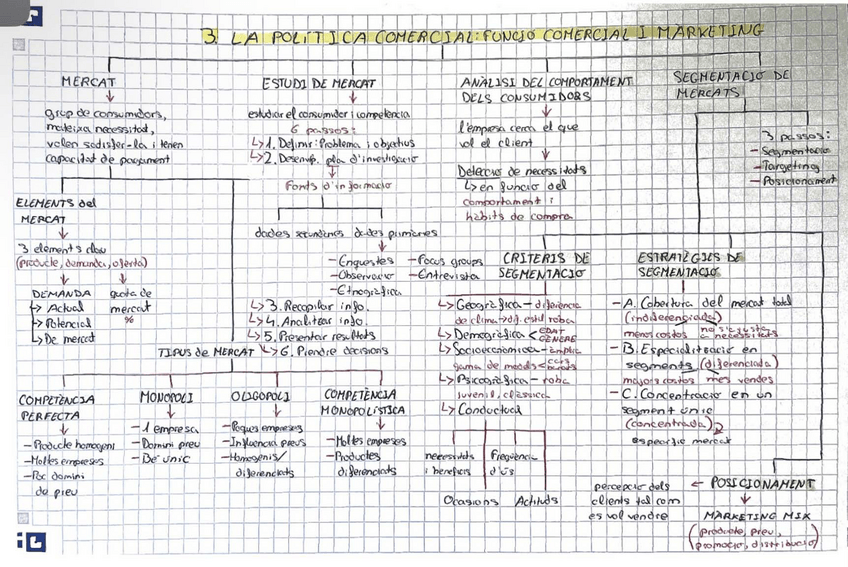 3. LA POLÍTICA COMERCIAL: FUNCIÓ COMERCIAL I MÀRKETING
MERCAT
grup de consumidors,
mateixa necessitat,
volen satisfer-la i tenen
capacitat de pagament
ELEMENTS del
MERCAT
3 elements clau
(producte, demanda, oferta)
DEMANDA
↳ Actual
↳ Potencial
↳ De mercat
quota de
mercat
%
ESTUDI DE MERCAT
estudiar el consumidor i competència
6 passos:
↳ 1. Definir: Problema i objectius
↳ 2. Desenvp. pla d'investigació
Fonts d'informació
dades secundàries dades primàries
- Enquestes
- Observació
- Etnogràfica
- Focus groups
- Entrevista
↳ 3. Recopilar info.
↳ 4. Analitzar info.
↳ 5. Presentar resultats
↳ 6. Prendre decisions
TIPUS de MERCAT
COMPETÈNCIA
PERFECTA
- Producte homogeni
- Moltes empreses
- Poc domini
de preu
MONOPOLI
- 1 empresa
- Domini preu
- Bé únic
OLIGOPOLI
- Poques empreses
- Influència preus
- Homogenis/
diferenciats
COMPETÈNCIA
MONOPOLÍSTICA
- Moltes empreses
- Productes
diferenciats
ANÀLISI DEL COMPORTAMENT
DELS CONSUMIDORS
l'empresa cerca el que
vol el client
Detecció de necessitats
↳ en funció del
comportament i
hàbits de compra
SEGMENTACIÓ DE
MERCATS
3 passos:
- Segmentació
- Targeting
- Posicionament
CRITERIS DE
SEGMENTACIÓ
↳ Geogràfica - diferència
de clima → dif. estil roba
↳ Demogràfica < EDAT
GÈNERE
↳ Socioeconòmica - àmplia
gama de models < cars
barats
↳ Psicogràfica - roba
juvenil, clàssica
↳ Conductual
necessitats
i beneficis
Freqüència
d'ús
Ocasions Actituds
ESTRATÈGIES DE
SEGMENTACIÓ
- A. Cobertura del mercat total
(indiferenciada)
menors costos no s'ajusta
a necessitats
- B. Especialització en
segments (diferenciada)
majors costos més vendes
- C. Concentració en un
segment únic
(concentrada)
específic mercat
← POSICIONAMENT
percepció dels
clients tal com
es vol vendre
MARKETING MIX
(producte, preu,
promoció, distribució)